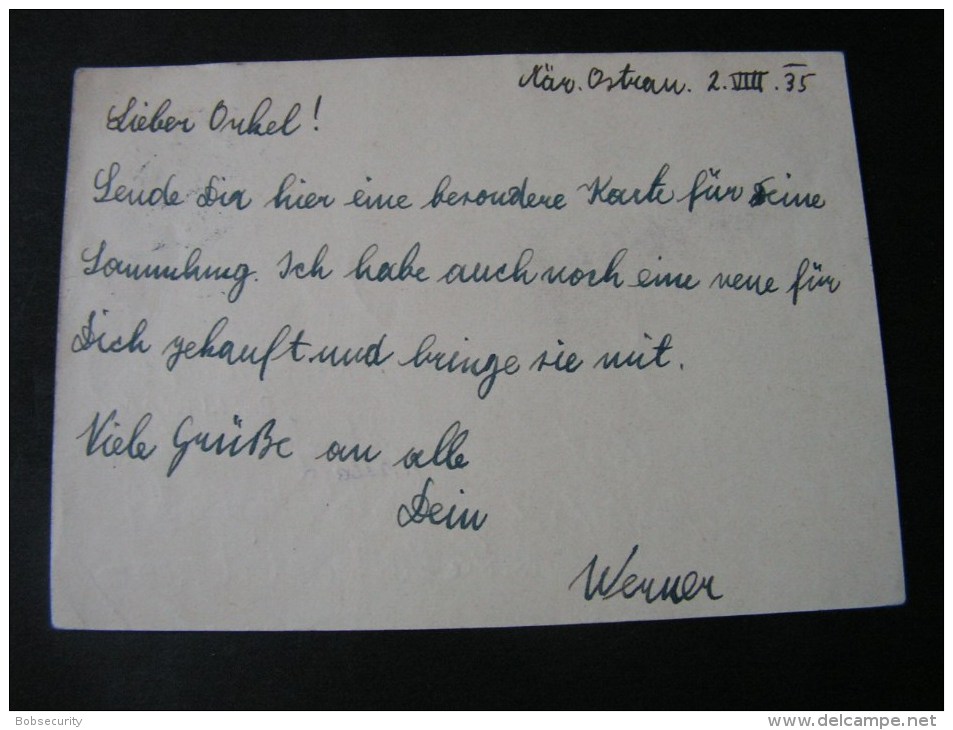 Mär. Ostrau. 2. VIII. 35
Lieber Onkel!
Sende Dir hier eine besondere Karte für Deine
Sammlung. Ich habe auch noch eine neue für
Dich gekauft und bringe sie mit.
Viele Grüße an alle
Dein
Werner
Bobsecurity
www.delcampe.net